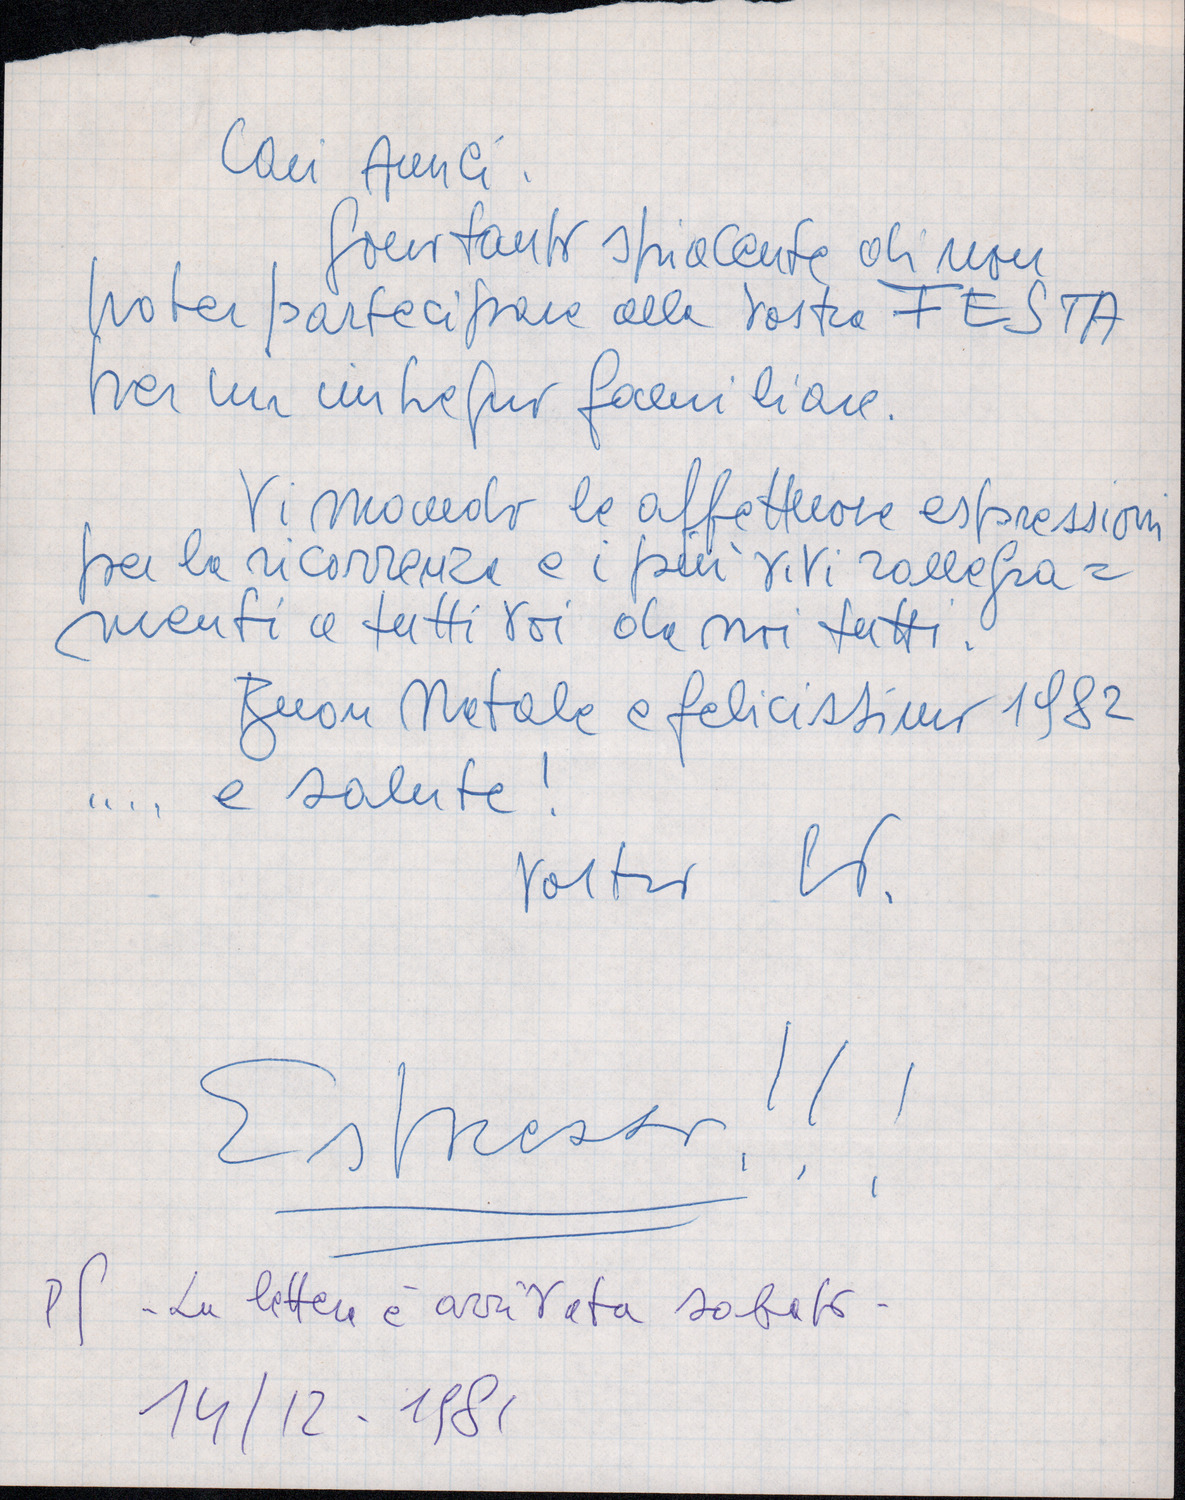 Cari Amici.
Sono tanto spiacente di non
poter partecipare alla vostra FESTA
per un impegno familiare.
Vi mando le affettuose espressioni
per la ricorrenza e i più vivi rallegra=
menti a tutti voi da noi tutti.
Buon Natale e felicissimo 1982
.... e salute!
Vostro
Espresso!!!
PS - La lettera è arrivata sabato -
14/12 - 1981